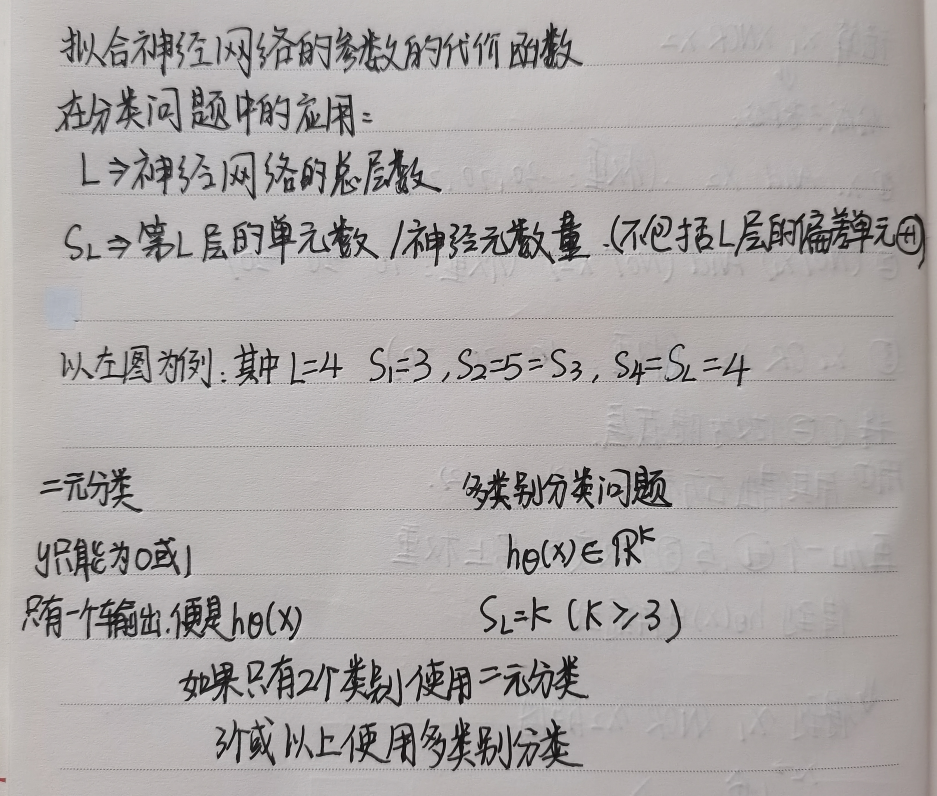 拟合神经网络的参数的代价函数
在分类问题中的应用:
L⇒神经网络的总层数
SL⇒第L层的单元数/神经元数量.(不包括L层的偏差单元+1)
以左图为例:其中L=4 S1=3,S2=5=S3,S4=SL=4
二元分类 多类别分类问题
y只能为0或1 hθ(x)∈ℝᴷ
只有一个输出.便是hθ(x) SL=K(K≥3)
如果只有2个类别使用二元分类
3个或以上使用多类别分类